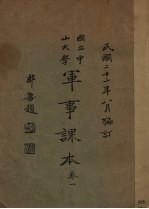 民國二十一年八月編訂
國立中
山大學
軍事課本
卷一
鄒魯題